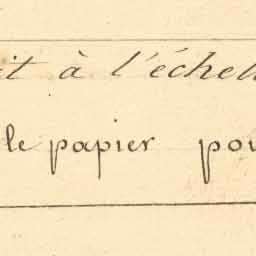 it à l'échell
le papier pou